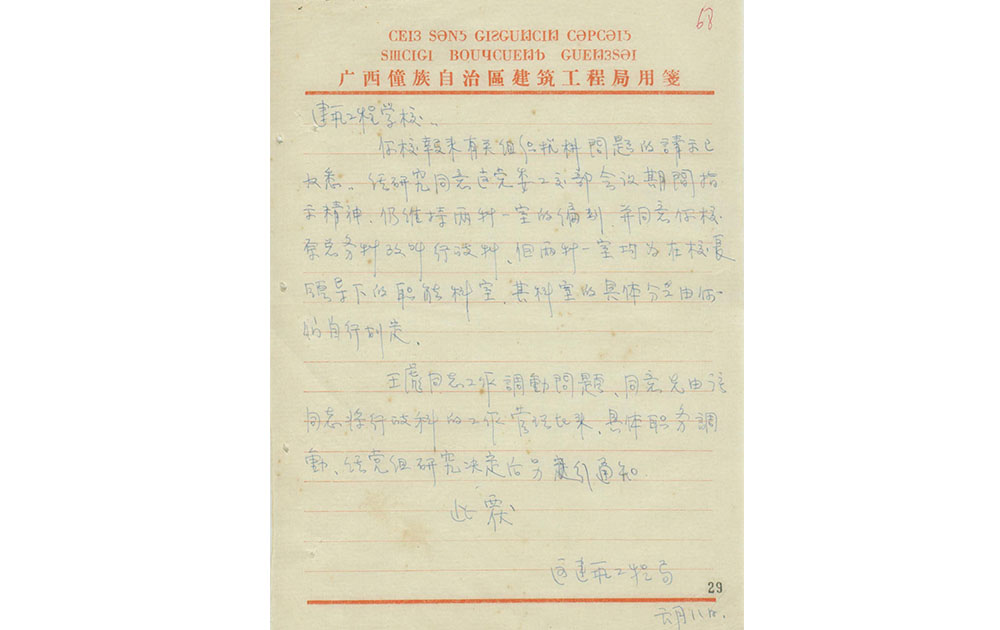 68
CEI3 SƏNƼ GIƧGUꟺCIꟺ CƏPCƏIƼ
SIꟺCIGI BOUЧCUEꟺƄ GUEꟺ3SƏI
广西僮族自治區建筑工程局用箋
建筑工程学校：
你校报来有关组织机构問题的請示已
收悉。经研究同意
示精神，仍维持两科一室的编制，并同意你校
原总务科改叫行政科，但两科一室均为在校長
领导下的职能科室，其科室的具体分工由你
们自行划定。
王彪同志工作調動問題，同意先由该
同志将行政科的工作管理起来，具体职务調
動，经党组研究决定后另通知。
此复
区建筑工程局
29
六月八日